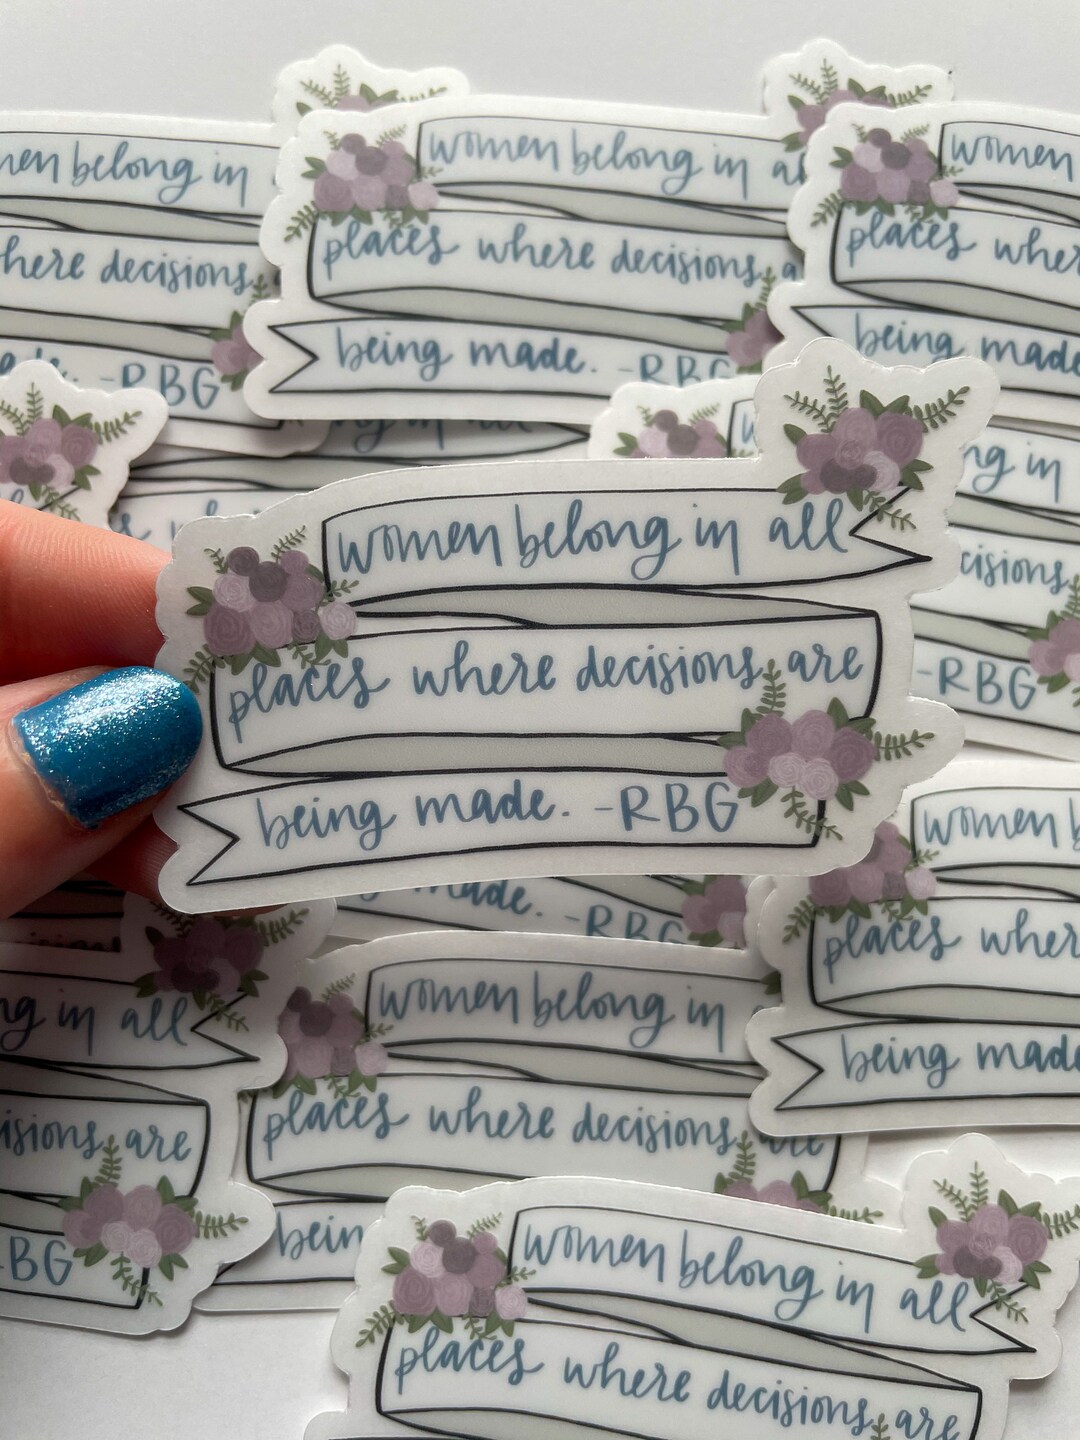 men belong in
women belong in a
women
here decisions
places where decisions a
places wher
being made. -RBG
being made
made. -RBG
ng in all
ng in
cisions
-RBG
women belong in all
places where decisions are
being made. -RBG
made. -RBG
women b
places wher
being made
ng in all
isions are
BG
women belong in
places where decisions are
bein
women belong in all
places where decisions are